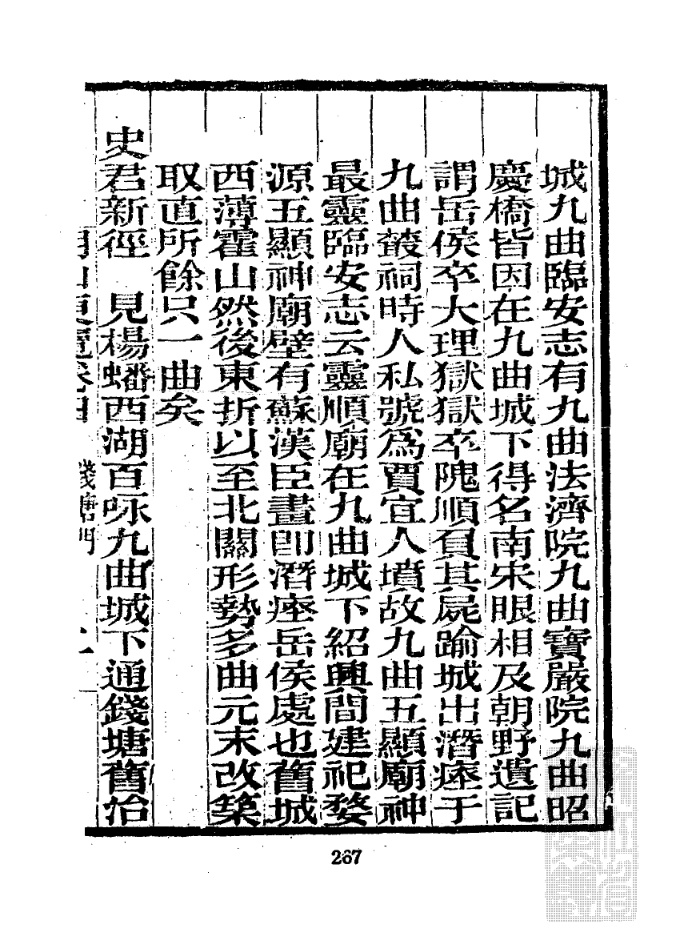 城九曲臨安志有九曲法濟院九曲寶嚴院九曲昭
慶橋皆因在九曲城下得名南宋眼相及朝野遺記
謂岳侯卒大理獄獄卒隗順負其屍踰城出潛瘞于
九曲叢祠時人私號為賈宜人墳故九曲五顯廟神
最靈臨安志云靈順廟在九曲城下紹興間建祀婺
源五顯神廟壁有蘇漢臣畫卽潛瘞岳侯處也舊城
西薄霍山然後東折以至北關形勢多曲元末改築
取直所餘只一曲矣
史君新徑　見楊蟠西湖百咏九曲城下通錢塘舊治
湖山便覽卷四　錢塘門
267